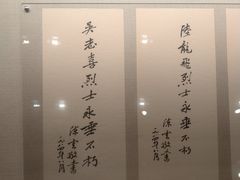 陸龍飛烈士永垂不朽
陳雲敬書
吳志喜烈士永垂不朽
陳雲敬書